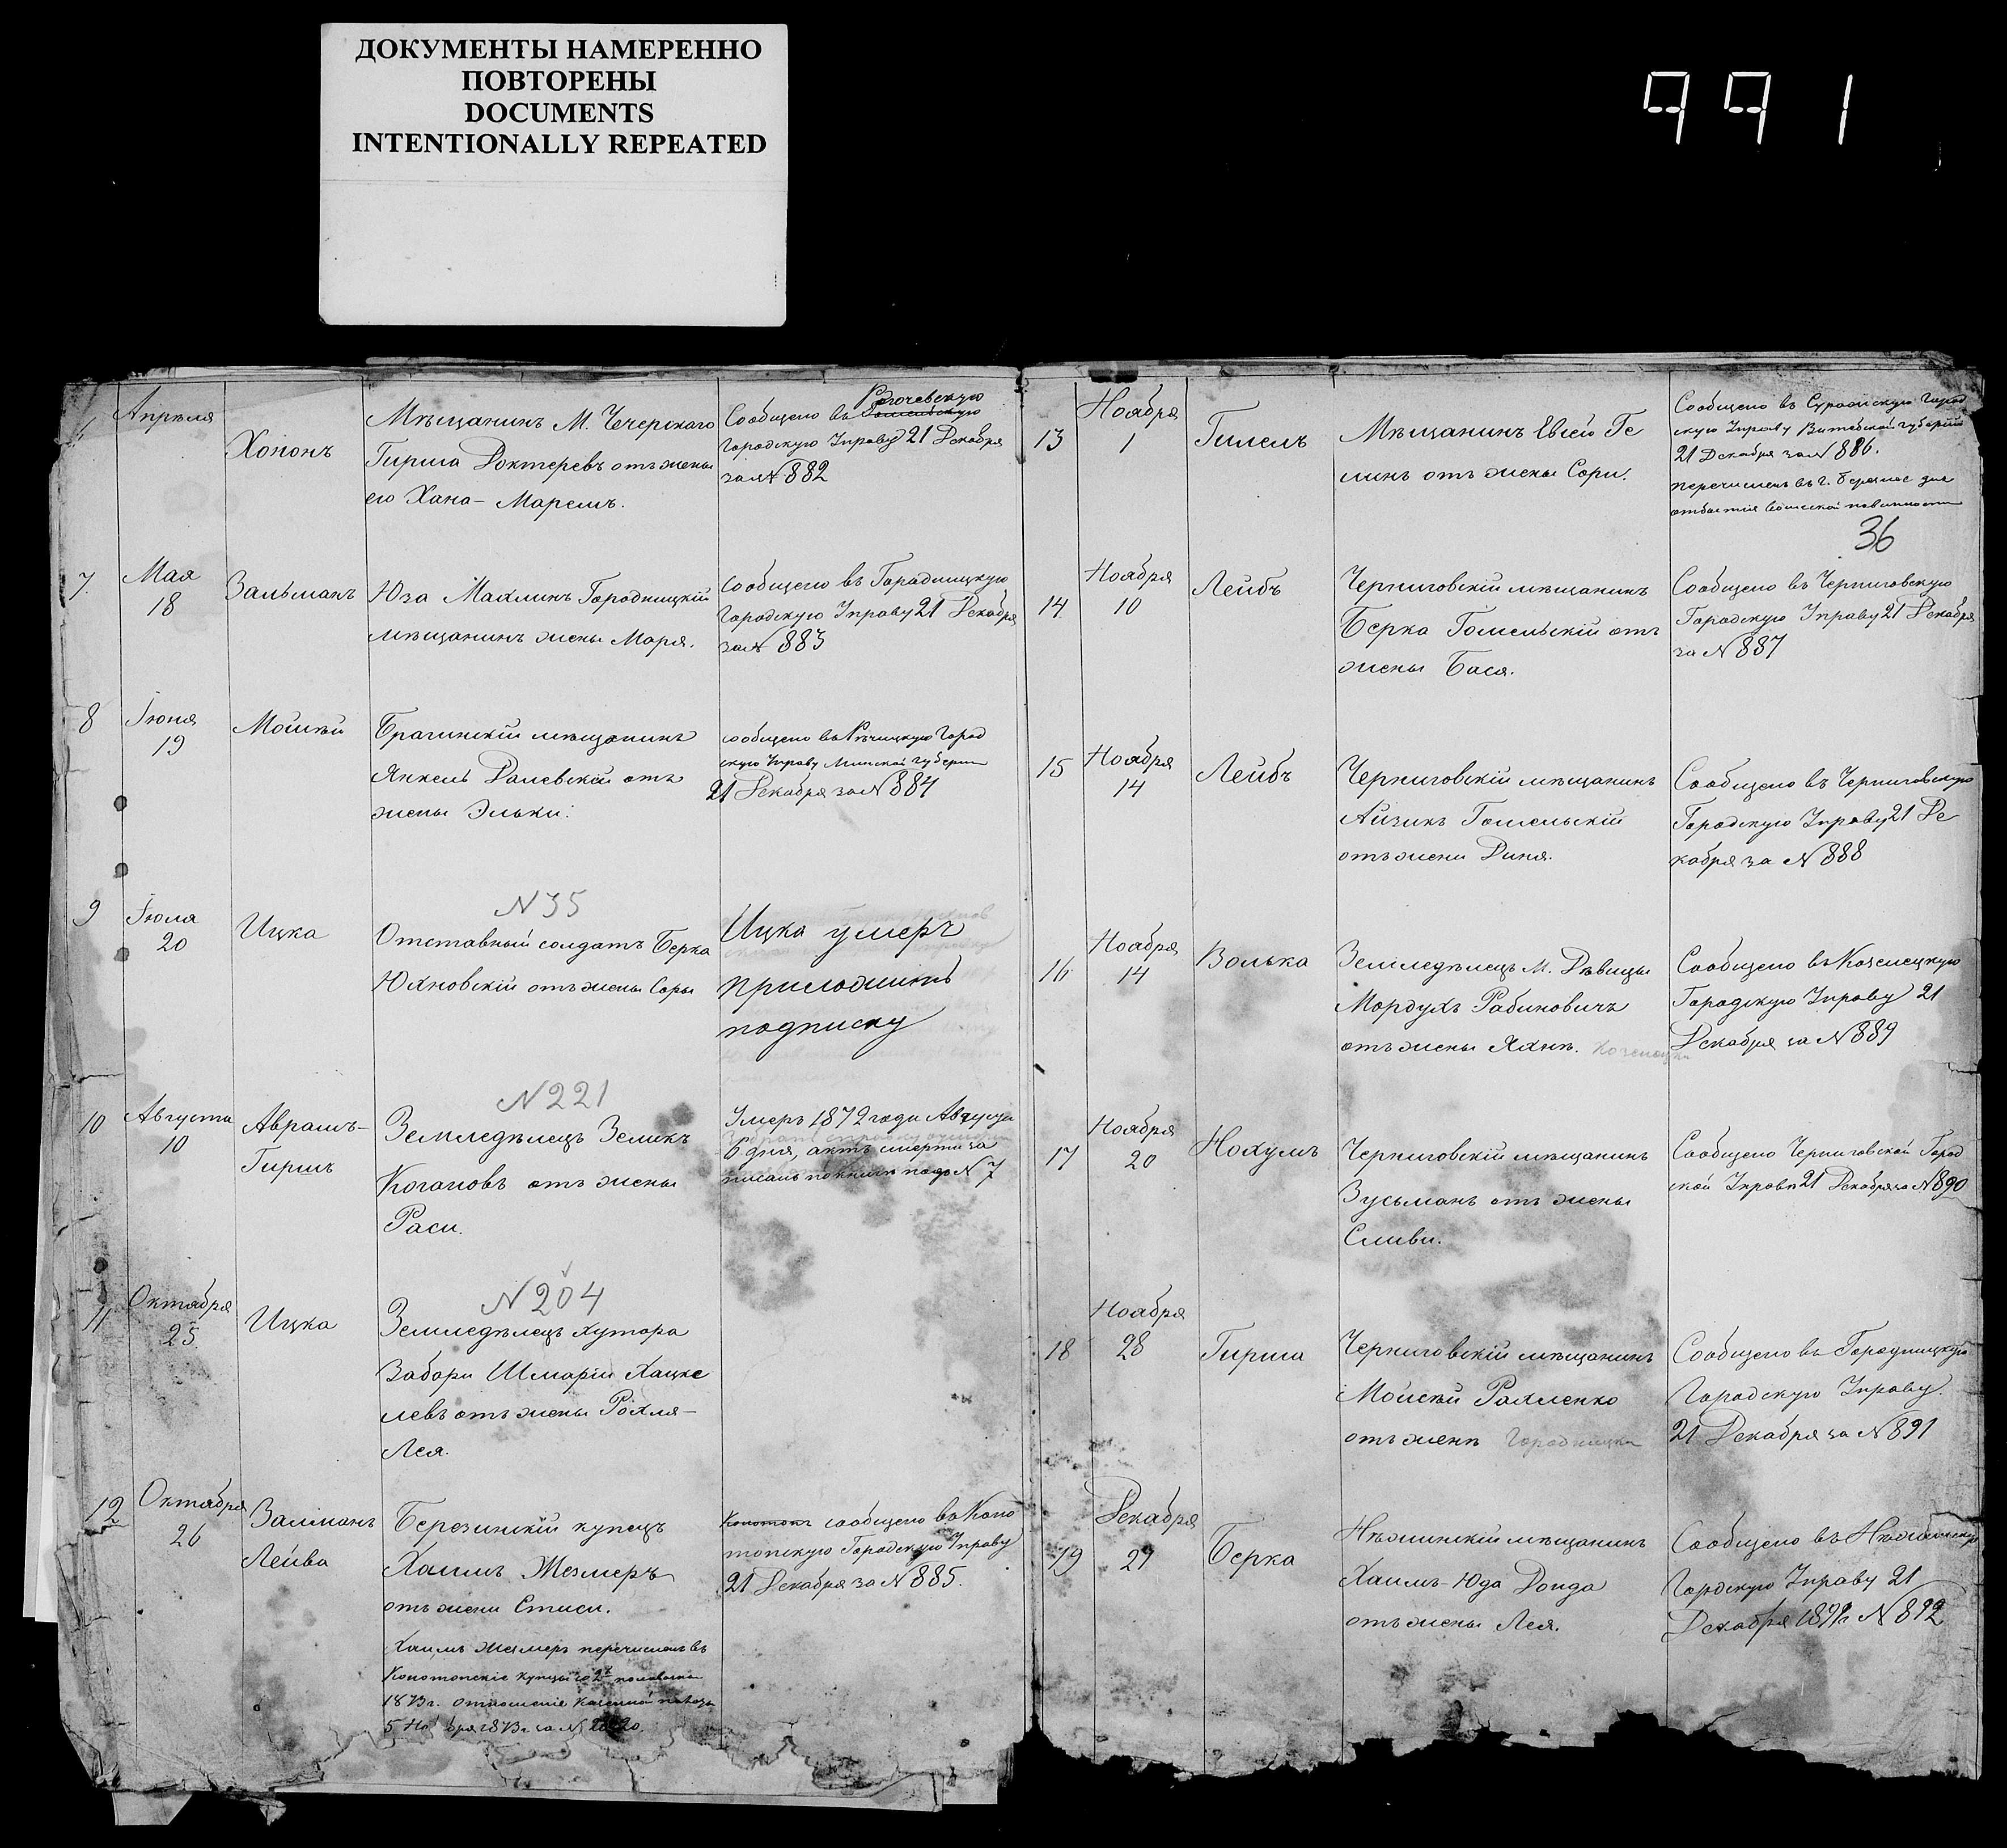 ДОКУМЕНТЫ НАМЕРЕННО
ПОВТОРЕНЫ
DOCUMENTS
INTENTIONALLY REPEATED
991
Апрѣля
Хононъ
Мѣщанинъ М. Чечерскаго
Гирша Доктеревъ отъ жены
его Хана-Маремъ.
Рогочевскую
Сообщено въ Гомельскую
Городскую Управу 21 Декабря
за № 882
7.
Мая
18
Зальманъ
Юза Махлинъ Городницкій
мѣщанинъ жены Маря.
Сообщено въ Городницкую
Городскую Управу 21 Декабря
за № 883
8
Іюня
19
Мойшей
Брагинскій мѣщанинъ
Янкель Далевскій отъ
жены Эльки.
сообщено въ Рѣчицкую Город
скую Управу Минской губерніи
21 Декабря за № 884
9
Іюля
20
Ицка
№ 35
Отставный солдатъ Берка
Юхновскій отъ жены Соры
Ицка умеръ
приложить
подписку
10
Августа
10
Аврамъ-
Гиршъ
№ 221
Земледѣлецъ Зеликъ
Когановъ отъ жены
Раси.
Умеръ 1872 года Августа
6 дня, актъ смерти за
писанъ по книгѣ подъ № 7
11
Октября
25.
Ицка
№ 204
Земледѣлецъ хутора
Забори Шмарія Хацке
левъ отъ жены Рохля-
Лея.
12
Октября
26
Залманъ
Лейва
Березинскій купецъ
Хаимъ Жезмеръ
отъ жены Стиси.
Хаимъ Жезмеръ перечисленъ въ
Конотопскіе купцы со 2й половины
1873 г. отношеніе Казенной палаты
5 Но бря 1873 г. за №
Конотопъ сообщено въ Коно
топскую Городскую Управу
21 Декабря за № 885.
13
Ноября
1
Гилелъ
Мѣщанинъ Евсей Ге
линъ отъ жены Сори.
Сообщено въ Суражскую Город
скую Управу Витебской губерніи
21 Декабря за № 886.
перечисленъ въ г. для
отбытія воинской повинности
36
14.
Ноября
10
Лейбъ
Черниговскій мѣщанинъ
Берка Гомельскій отъ
жены Бася.
Сообщено въ Черниговскую
Городскую Управу 21 Декабря
за № 887
15
Ноября
14
Лейбъ
Черниговскій мѣщанинъ
Айзикъ Гомельскій
отъ жены Диня.
Сообщено въ Черниговскую
Городскую Управу 21 Де
кабря за № 888
16
Ноября
14
Волька
Земледѣлецъ М. Дѣвицы
Мордухъ Рабиновичъ
отъ жены Ханѣ. Козелецка
Сообщено въ Козелецкую
Городскую Управу 21
Декабря за № 889
17
Ноября
20
Нохумъ
Черниговскій мѣщанинъ
Зусьманъ отъ жены
Сливи.
Сообщено Черниговской Город
ской Управѣ 21 Декабря за № 890
18
Ноября
28
Гирша
Черниговскій мѣщанинъ
Мойсей Рахленко
отъ женѣ Городницка
Сообщено въ Городницкую
Городскую Управу.
21 Декабря за № 891
19
Декабря
29
Берка
Нѣжинскій мѣщанинъ
Хаимъ-Юда Донда
отъ жены Лея.
Сообщено въ Нѣжинскую
Городскую Управу 21
Декабря 1892 г. № 892